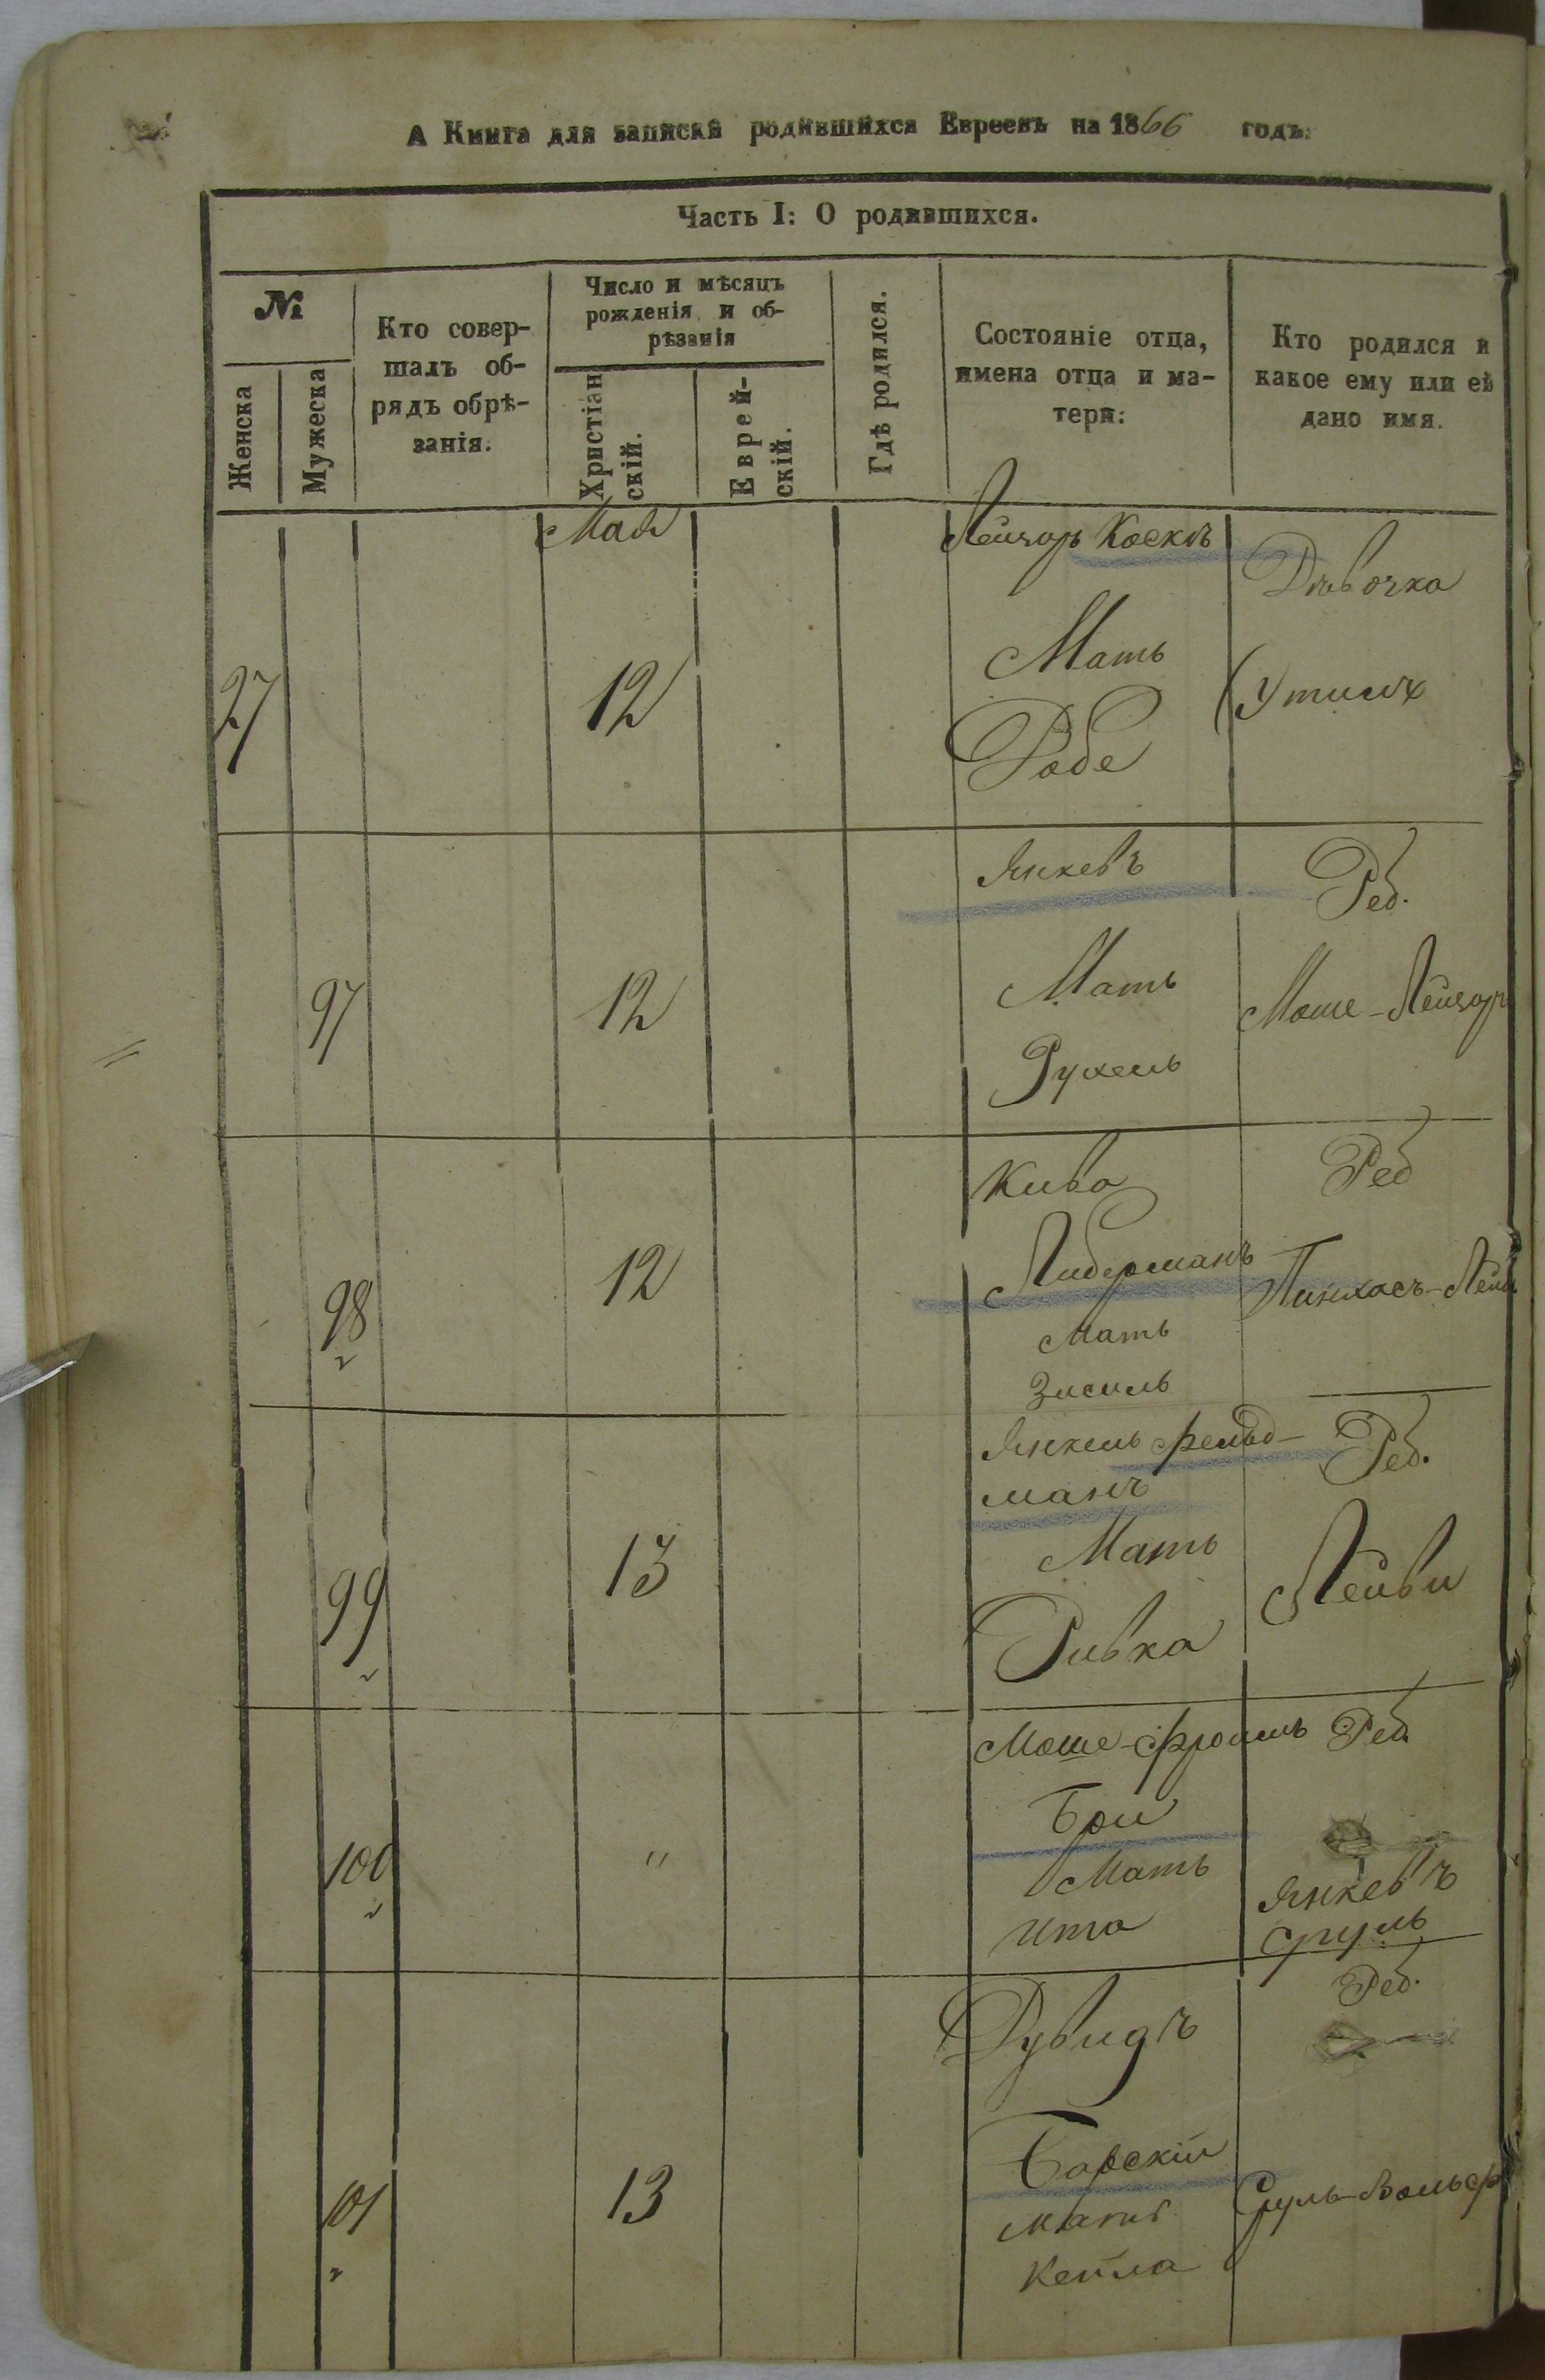 А Книга для записки родившихся Евреевъ на 1866 годъ.
Часть I: О родившихся.
№
Женска
Мужеска
Кто совер-
шалъ об-
рядъ обрѣ-
занія.
Число и мѣсяцъ
рожденія и об-
рѣзанія
Христіан
скій.
Еврей-
скій.
Гдѣ родился.
Состояніе отца,
имена отца и ма-
тери:
Кто родился и
какое ему или еѣ
дано имя.
Мая
27
12
Лейзоръ
Мать
Робе
Дѣвочка
97
12
Янкевъ
Мать
Рухель
Ред.
Моше-Лейзоръ
98
12
Кива
Либерманъ
Мать
Зисиль
Ред
Пинхасъ-Лейб
99
13
Янкель Фельд-
манъ
Мать
Ривка
Ред.
Лейви
100
"
Моше-Фроимъ
Бри
Мать
Ита
Ред.
Янкевъ
Сруль
101
13
Дувидъ
Барскій
Мать
Кейла
Ред.
Сруль-Вольф